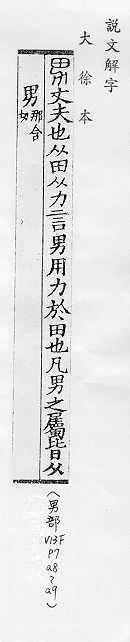 說文解字
大徐本
男丈夫也从田从力言男用力於田也凡男之屬皆从
男那含切
（男部 V13F P7 a8~a9）